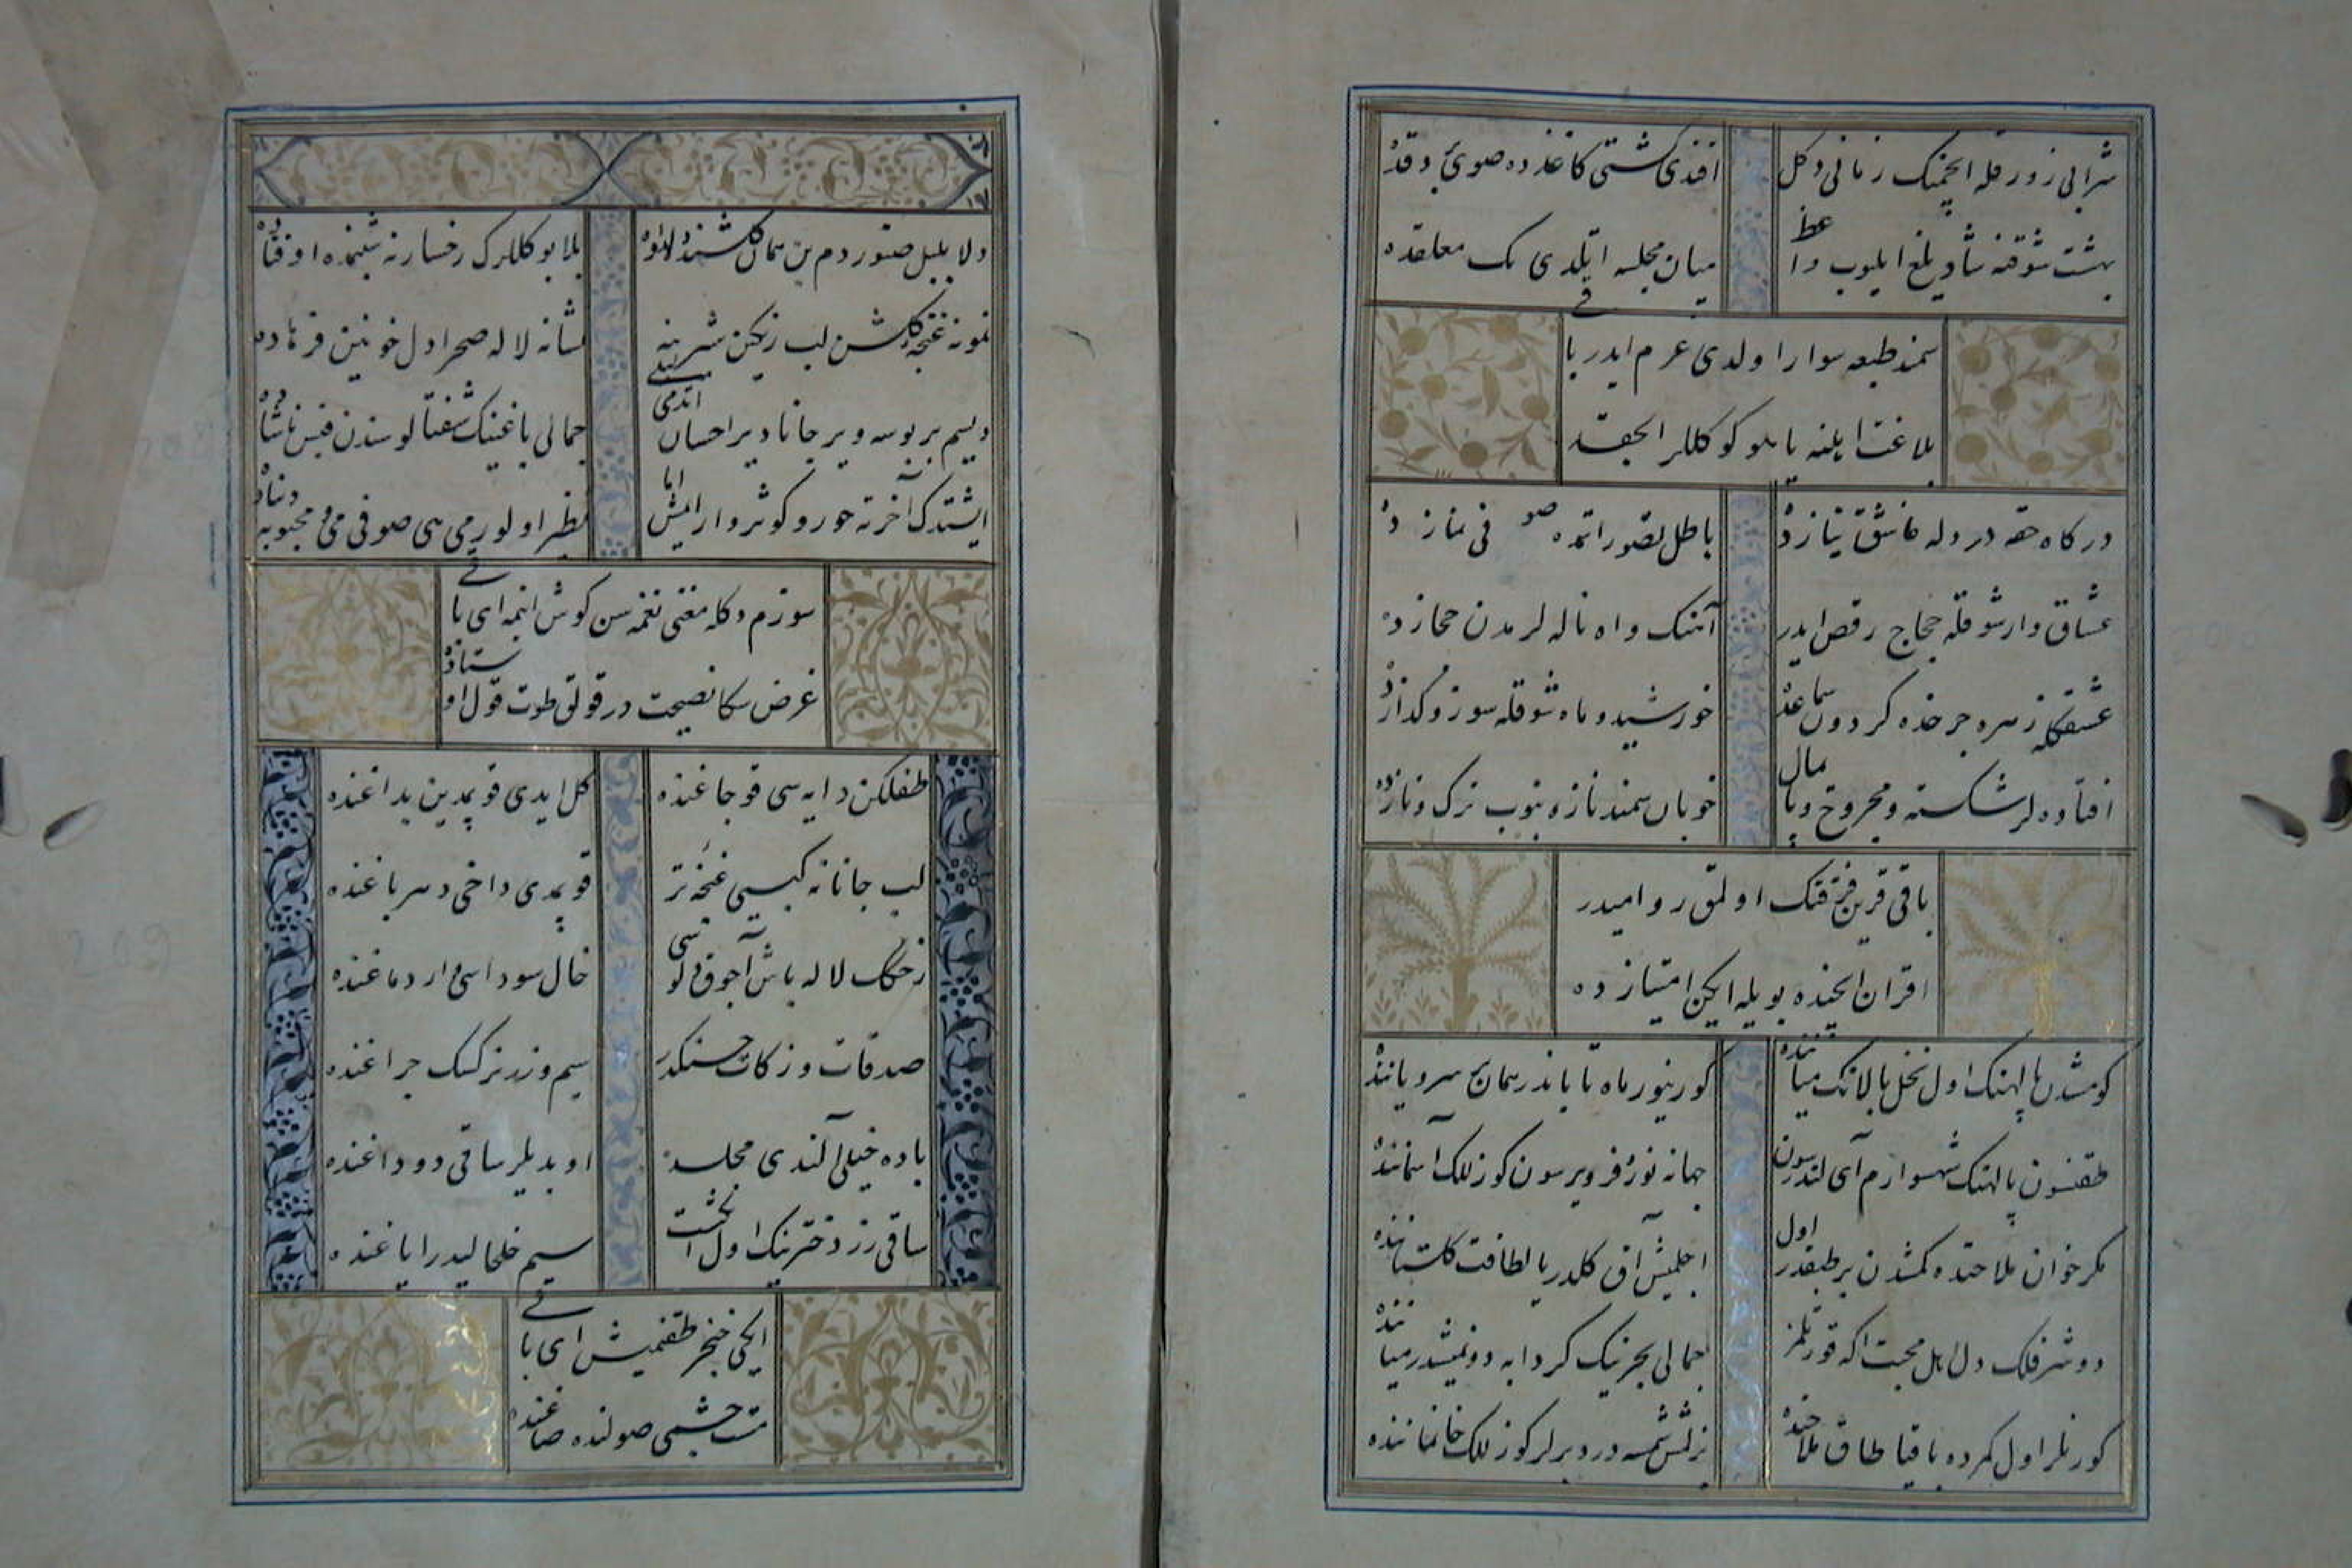 شرابی زورقله ایچمنك زمانی دكل
اقندی كشتی كاغذده صویی دقدّ
بهشت شوقنه شاد یلغ ایلیوب واعظ
میان مجلسه اتلدی تك معلقده
سمند طبعه سوار اولدی عزم ایدر باقی
بلاغت ایلنه یا یلو كوكللر الحقده
دركاه حقه درد دله عاشق نیازده
باطل تصور اتمده صوفی نمازده
عشاق وار شوقله حجاج رقص ایدر
آهنك واه ناله لرمدن حجازده
عشقكله زهره چرخده كردون سماعده
خورشید و ماه شوقله سوز و كدازده
افتاده لر شكسته و مجروح و پایمال
خوبان سمند نازه بنوب ترك و تازده
باقی قرین فرقتك اولمق روامیدر
اقران ایچنده بویله ایكن امتیازده
كومشدن پالهنك اول نخل بالانك میاننده
كورینور ماه تابان در همان سرو یاننده
طقنسون پالهنك شهسوارم آی لندرسون
جهانه نور فر ویرسون كوزللك آسماننده
مكر خوان ملاحتده كمشدن بر طبقدر اول
اچلمش آق كلدر یا لطافت كلستاننده
دوشر فلك دل اهل محبت اكه قورتلمز
جمالی بحرینك كردابه دونمشدر میاننده
كورنلر اول كمرده باقیا طاق ملاحتده
بزلمش شمسه در دیرلر كوزللك خانماننده
دلا بلبل صنوردم بن همان كلشنده لانوه
بلا بو كللرك رخسارنه شبنمده اوفتاده
نمونه غنچه كلشن لب رنكین شیرینه
نشانه لاله صحرا دل خونین فرهاده
دیسم بر بوسه ویر جانا دیر احسان اتدمی
جمالی باغینك شفتالوسندن قیس ناشاده
ایشتدك آخرته حور و كوثر وار ایمش اما
نظیر اولورمی هی صوفی می و محبوبه دنیاده
سوزم دكله مغنی نغمه سن كوش ایتمه ای باقی
غرض سكا نصیحت در قولق طوت قول استاده
طفلكن دایه سی قوجاغنده
كل ایدی قوپمدین بداغنده
لب جانانه كبسی غنچه تر
قوپمدی داخی دهر باغنده
زنكك لاله باش آچوقلوسی
خال سوداسی وار دماغنده
صدقات و زكات حسنكدر
سیم و زر نركسك چراغنده
باده خیلی آلندی مجلسده
اوبدیلر ساقی دوداغنده
ساقی رز دخترینك اول انكشت
سیم خلخالیدر ایاغنده
ایكی خنجر طقنمیش ای باقی
مست چشمی صولنده صاغنده